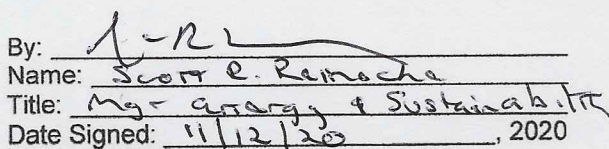 By:
Name: Scott R.
Title: Mgr Energy & Sustainability
Date Signed: 11/12/20, 2020